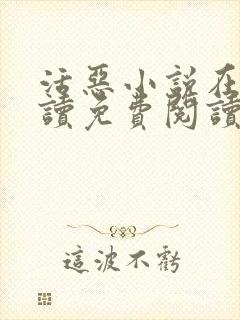 活惡小說在
讀免費閱讀
這波不虧